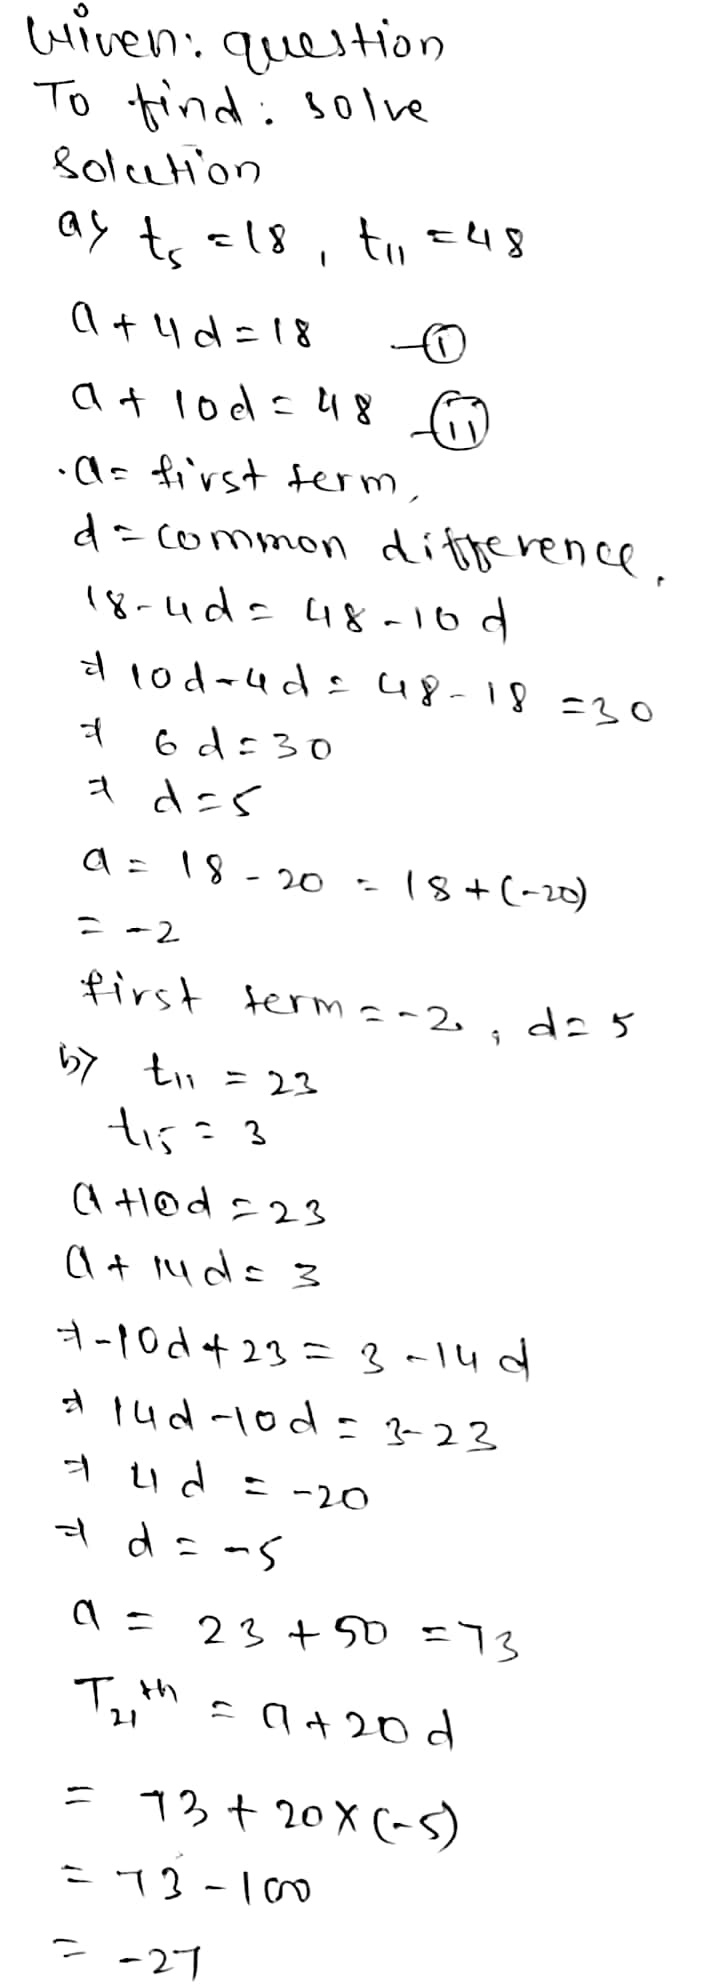 Given: question
To find: solve
Solution
a) t5 = 18, t11 = 48
a + 4d = 18 —(i)
a + 10d = 48 —(ii)
. a = first term,
d = common difference.
18 - 4d = 48 - 10d
⇒ 10d - 4d = 48 - 18 = 30
⇒ 6d = 30
⇒ d = 5
a = 18 - 20 = 18 + (-20)
= -2
first term = -2, d = 5
b) t11 = 23
t15 = 3
a + 10d = 23
a + 14d = 3
⇒ -10d + 23 = 3 - 14d
⇒ 14d - 10d = 3 - 23
⇒ 4d = -20
⇒ d = -5
a = 23 + 50 = 73
T21th = a + 20d
= 73 + 20 × (-5)
= 73 - 100
= -27